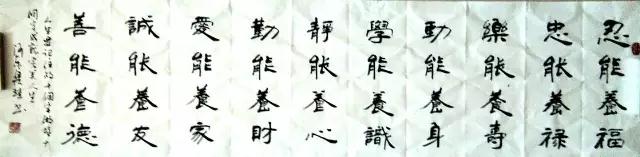 忍能養福
忠能養禄
樂能養壽
動能養身
學能養識
靜能養心
勤能養財
愛能養家
誠能養友
善能養德